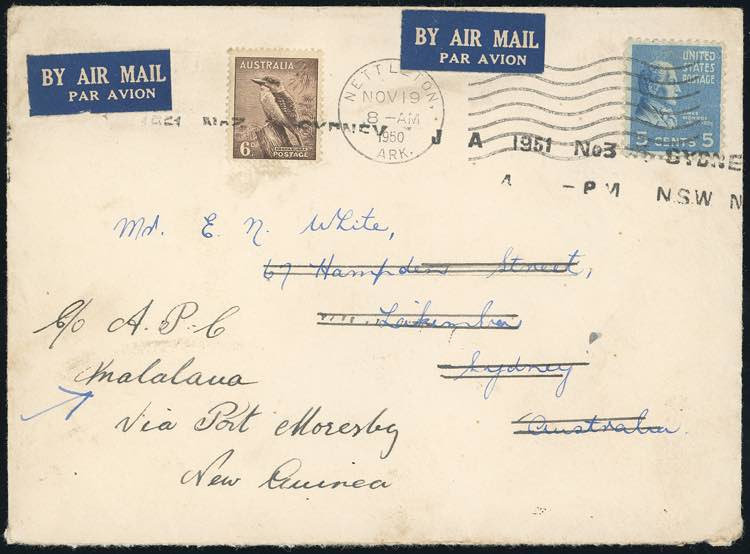 BY AIR MAIL
PAR AVION
AUSTRALIA
6D
POSTAGE
NETTLETON
NOV 19
8 - AM
1950
ARK.
BY AIR MAIL
PAR AVION
UNITED
STATES
POSTAGE
JAMES
MONROE
5 CENTS 5
SYDNEY
J A 1951 No3 SYDNE
A - PM N.S.W N
Mr. E. N. White,
67 Hampden Street,
Sydney
Australia.
c/o A.P.C
Malalaua
Via Port Moresby
New Guinea